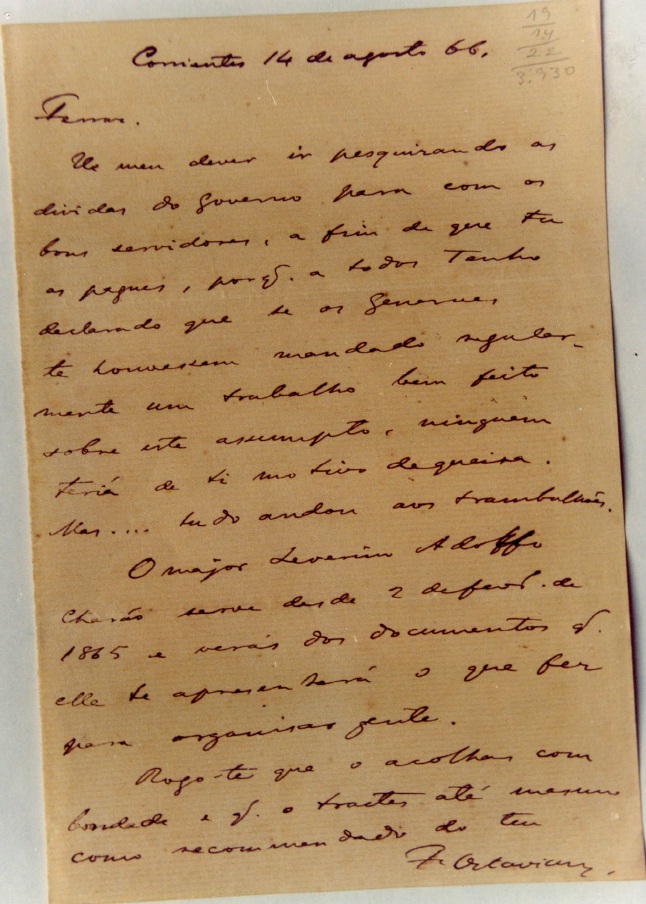 19
14
22
3.930
Corrientes 14 de agosto 66.
Ferraz.
He meu dever ir pesquirando as
dividas do Governo para com os
bons servidores, a fim de que tu
as pagues, porq. a todos tenho
declarado que se os Generaes
te houvessem mandado regular-
mente um trabalho bem feito
sobre este assumpto, ninguem
teria de ti motivo de queixa.
Mas.... tudo andou aos trambulhões.
O major Severino Adolffo
Charão serve desde 2 de fevº. de
1865 e verás dos documentos q.
elle te apresentará o que fez
para organisar gente.
Rogo-te que o acolhas com
bondade e q. o tractes até mesmo
como recommendado do teu
F. Octaviano.